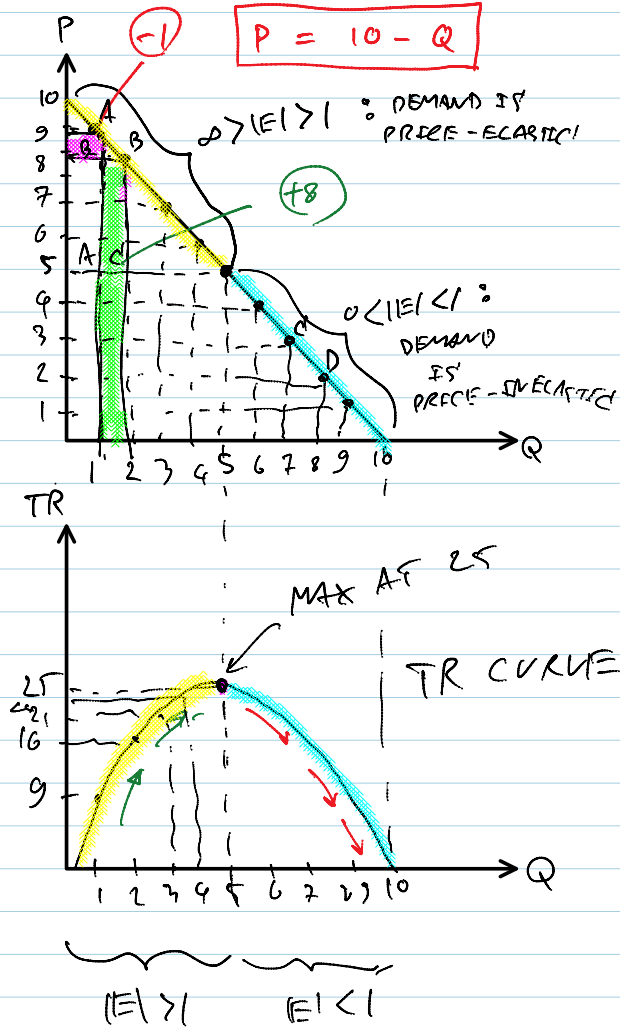 P
-1
P = 10 - Q
10
9
8
7
6
5
4
3
2
1
A
B
B
A
C
+8
∞ > |E| > 1 : DEMAND IS
PRICE-ELASTIC!
0 < |E| < 1 :
DEMAND
IS
PRICE-INELASTIC
C
D
1 2 3 4 5 6 7 8 9 10
Q
TR
MAX AT 25
TR CURVE
25
21
16
9
1 2 3 4 5 6 7 8 9 10
Q
|E| > 1
|E| < 1